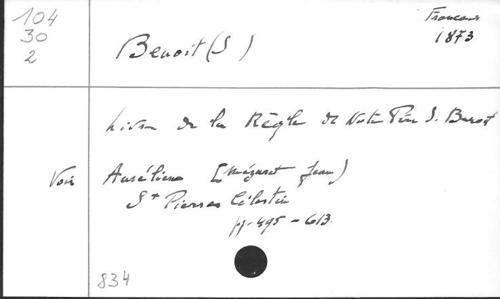 104
30
2
Français
1873
Benoit (S )
Livre de la Règle de Notre Père S. Benoit
Voir Aurélien [Méguret Jean)
St Pierre Célestin
pp. 495-613.
834